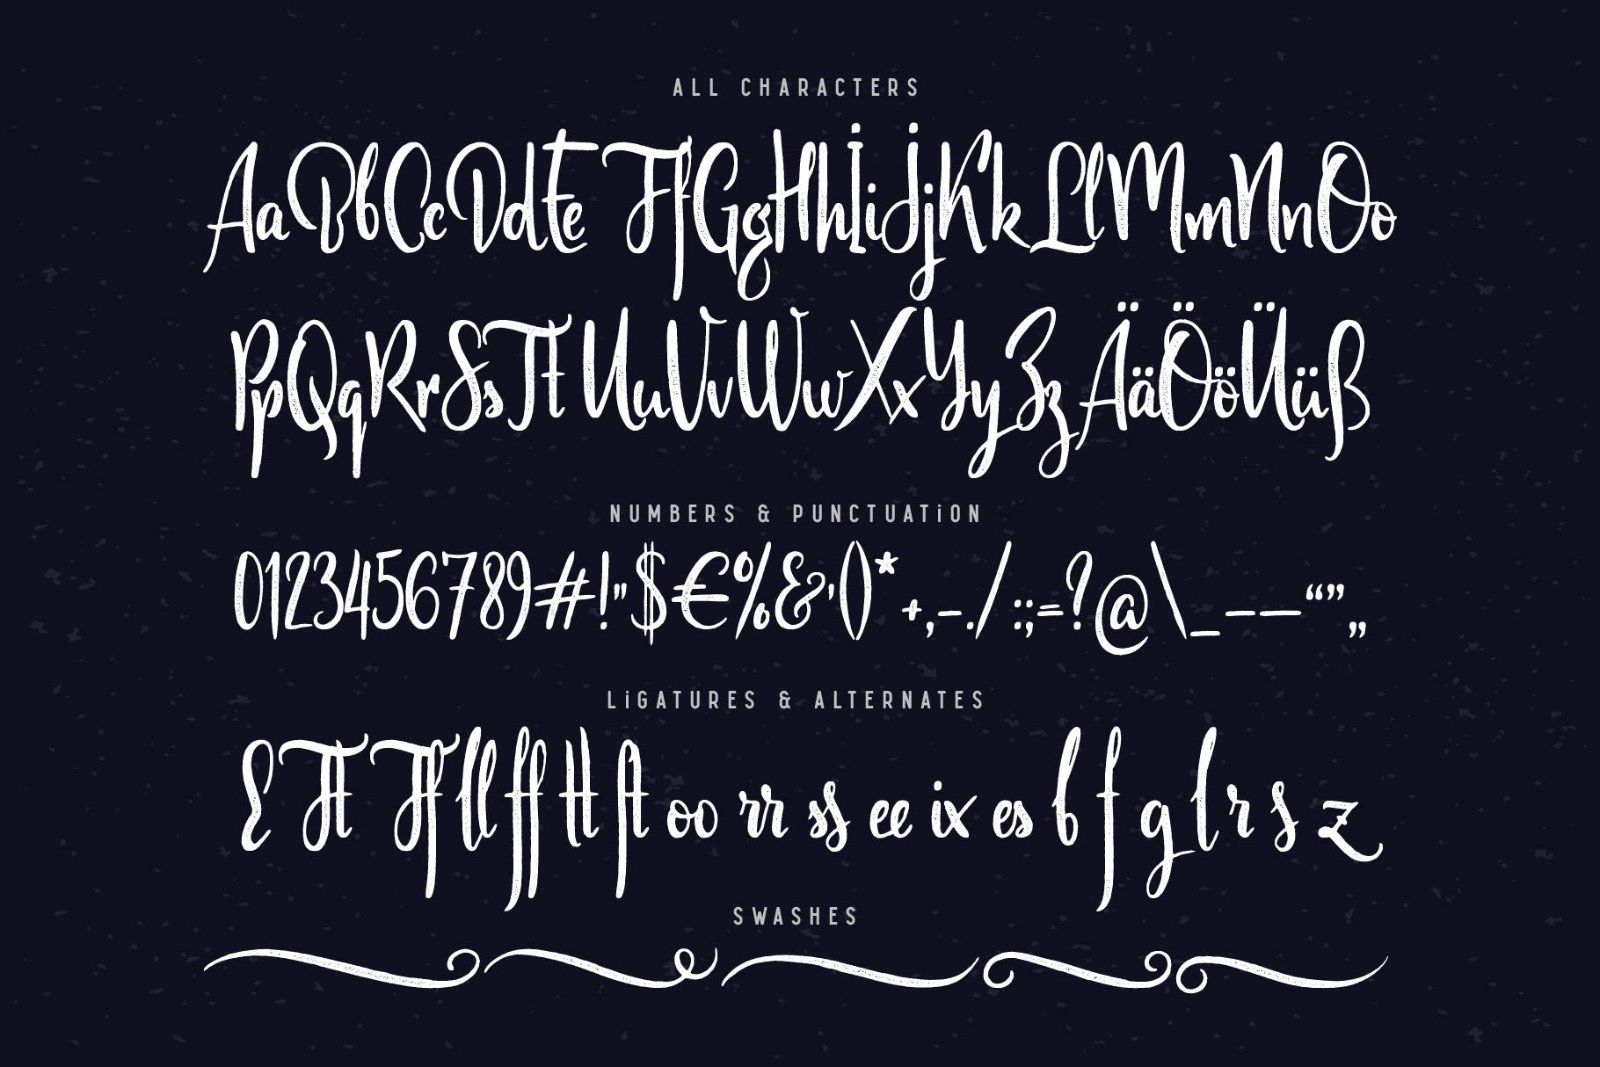 ALL CHARACTERS
AaBbCcDdEeFfGgHhIiJjKkLlMmNnOo
PpQqRrSsTtUuVvWwXxYyZzÄäÖöÜüß
NUMBERS & PUNCTUATiON
0123456789#!"$€%&'()*+,-./:;=?@\_–—“”„
LiGATURES & ALTERNATES
E Tt Tf ll ff tt ft oo rr ss ee ix es b f g l r s z
SWASHES